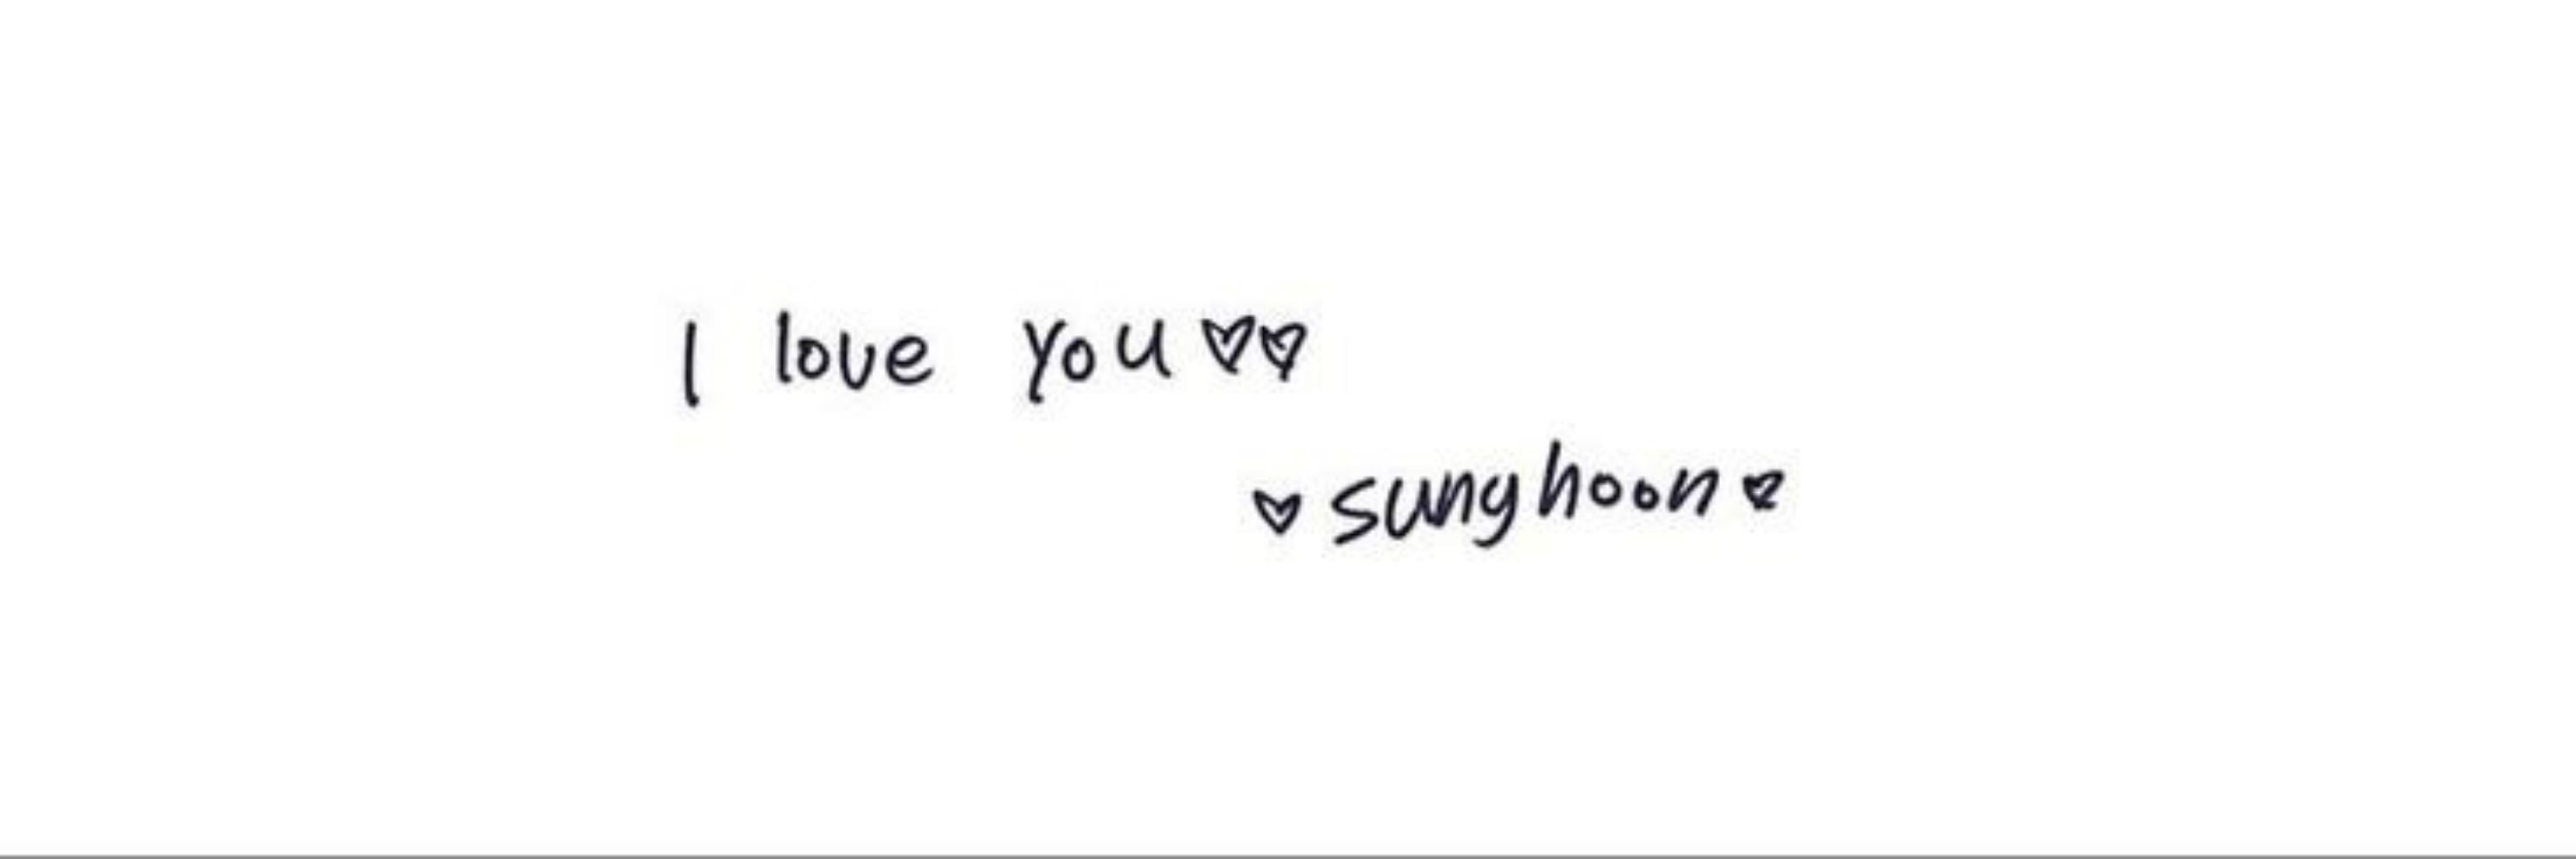 I love you♡♡
♡sunghoon♡